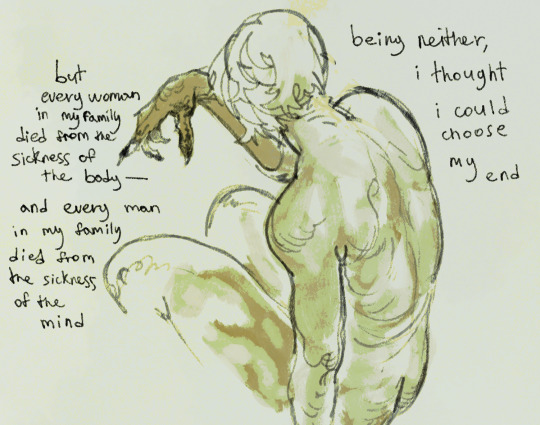 but
every woman
in my family
died from the
sickness of
the body—
and every man
in my family
died from
the sickness
of the
mind
being neither,
i thought
i could
choose
my end